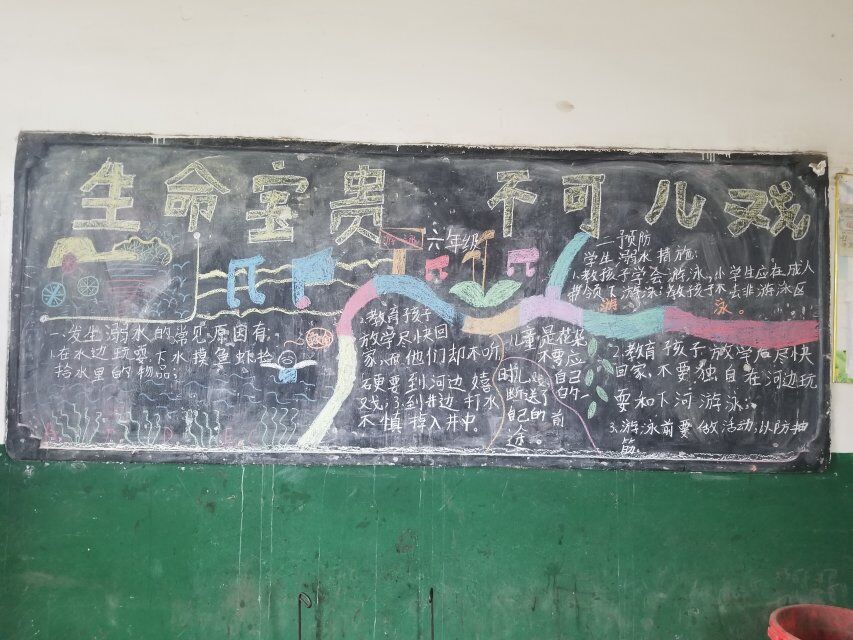 生命宝贵 不可儿戏
六年级
一发生溺水的常见原因有:
1.在水边玩耍下水摸鱼虾拾
拾水里的物品;
2.教育孩子
放学尽快回
家,而他们却不听
硬要到河边嬉
戏;3.到井边打水
不慎掉入井中.
儿童是花朵
不要应
时儿戏自己
断送了自己
自己的前
途。
二预防
学生溺水措施:
1.教孩子学会游泳,小学生应在成人
带领下游泳;教孩子不去非游泳区
游泳。
2.教育孩子放学后尽快
回家,不要独自在河边玩
耍和下河游泳;
3.游泳前要做活动,以防抽
筋